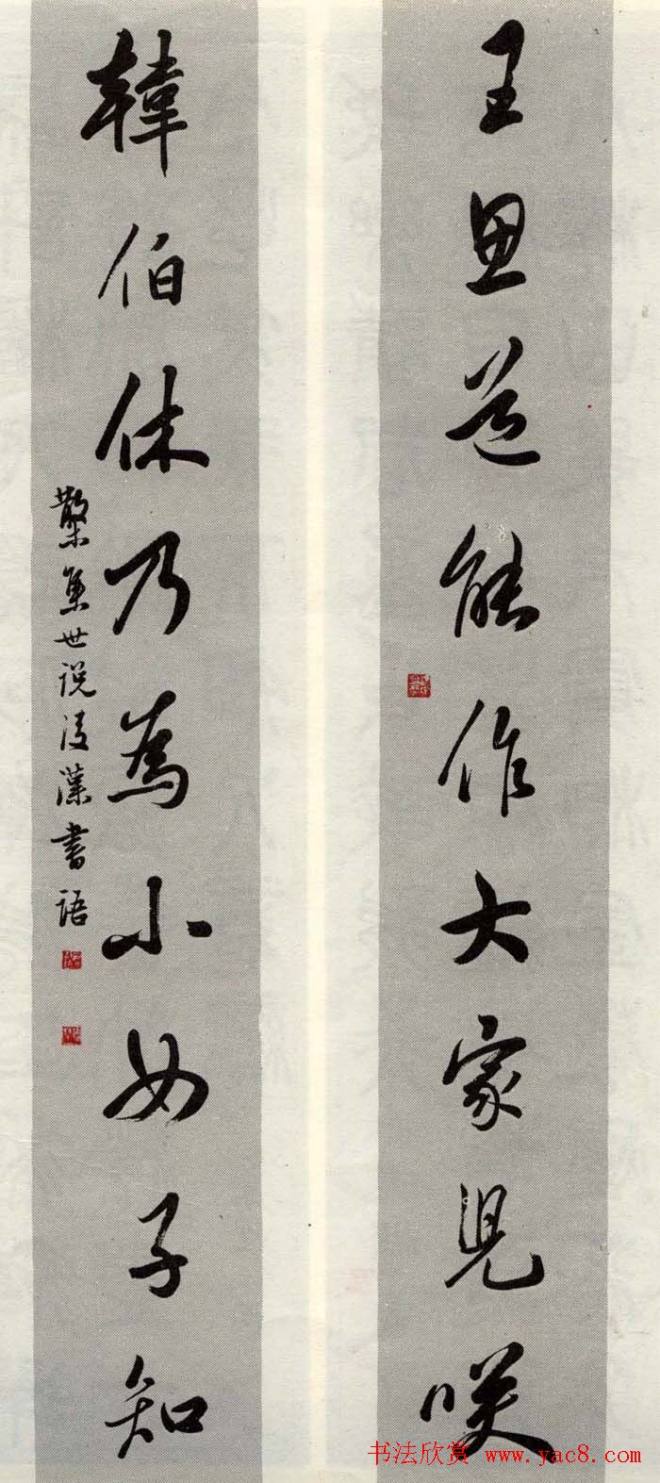 王思道能作大家兒咲
韓伯休乃為小女子知
散集世說後漢書語
书法欣赏 www.yac8.com